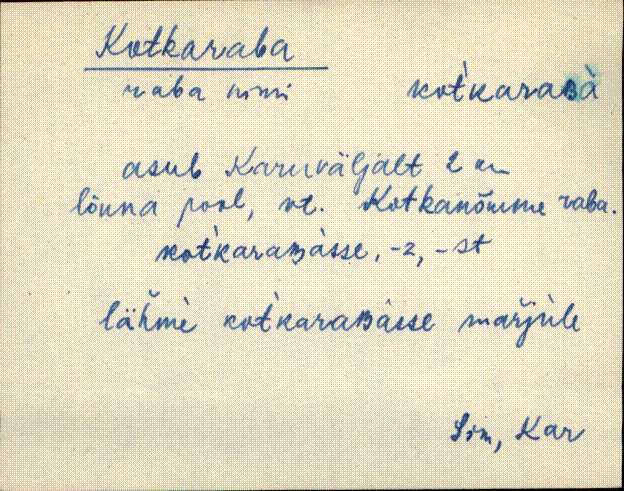 Kotkaraba
raba nimi kot'karaʙà
asub Karuväljalt 2 km
lõuna pool, vt. Kotkanõmme raba.
kot'karaʙàsse, -z, -st
lähmè kot'karaʙàsse marjùle
Sim, Kar